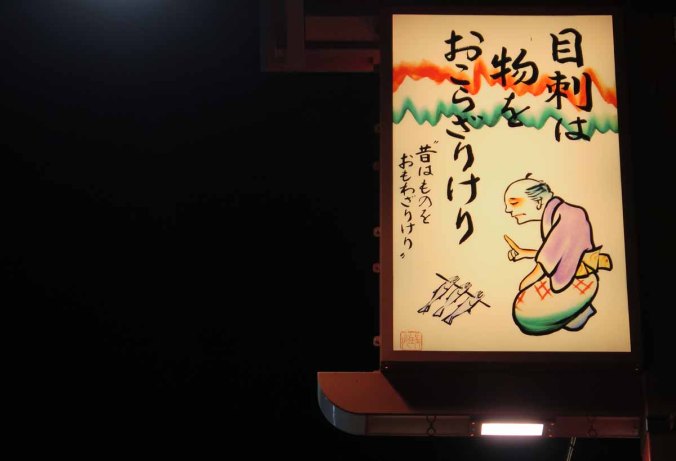 目刺は
物を
おこらざりけり
“昔はものを
おもわざりけり”